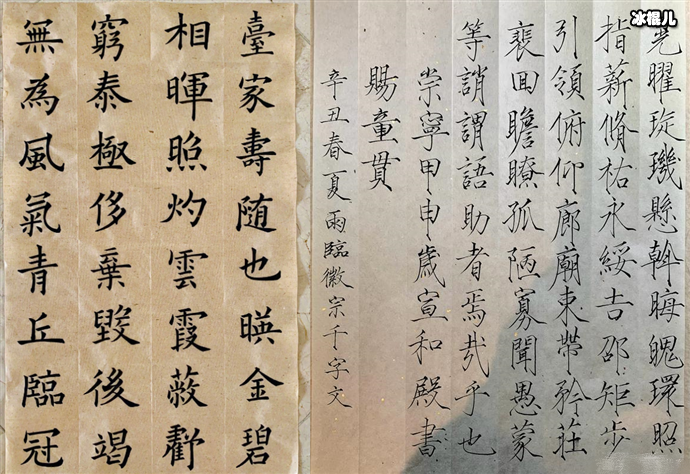 冰棍儿
臺家壽随也暎金碧
相暉照灼雲霞蔽虧
窮泰極侈棄毀後竭
無為風氣青丘臨冠
晃曜琁璣懸斡晦魄環照
指薪脩祜永綏吉邵矩步
引領俯仰廊廟束帶矜莊
裵回瞻瞭孤陋寡聞愚蒙
等誚謂語助者焉哉乎也
崇寧甲申歲宣和殿書
賜童貫
辛丑春夏雨臨徽宗千字文